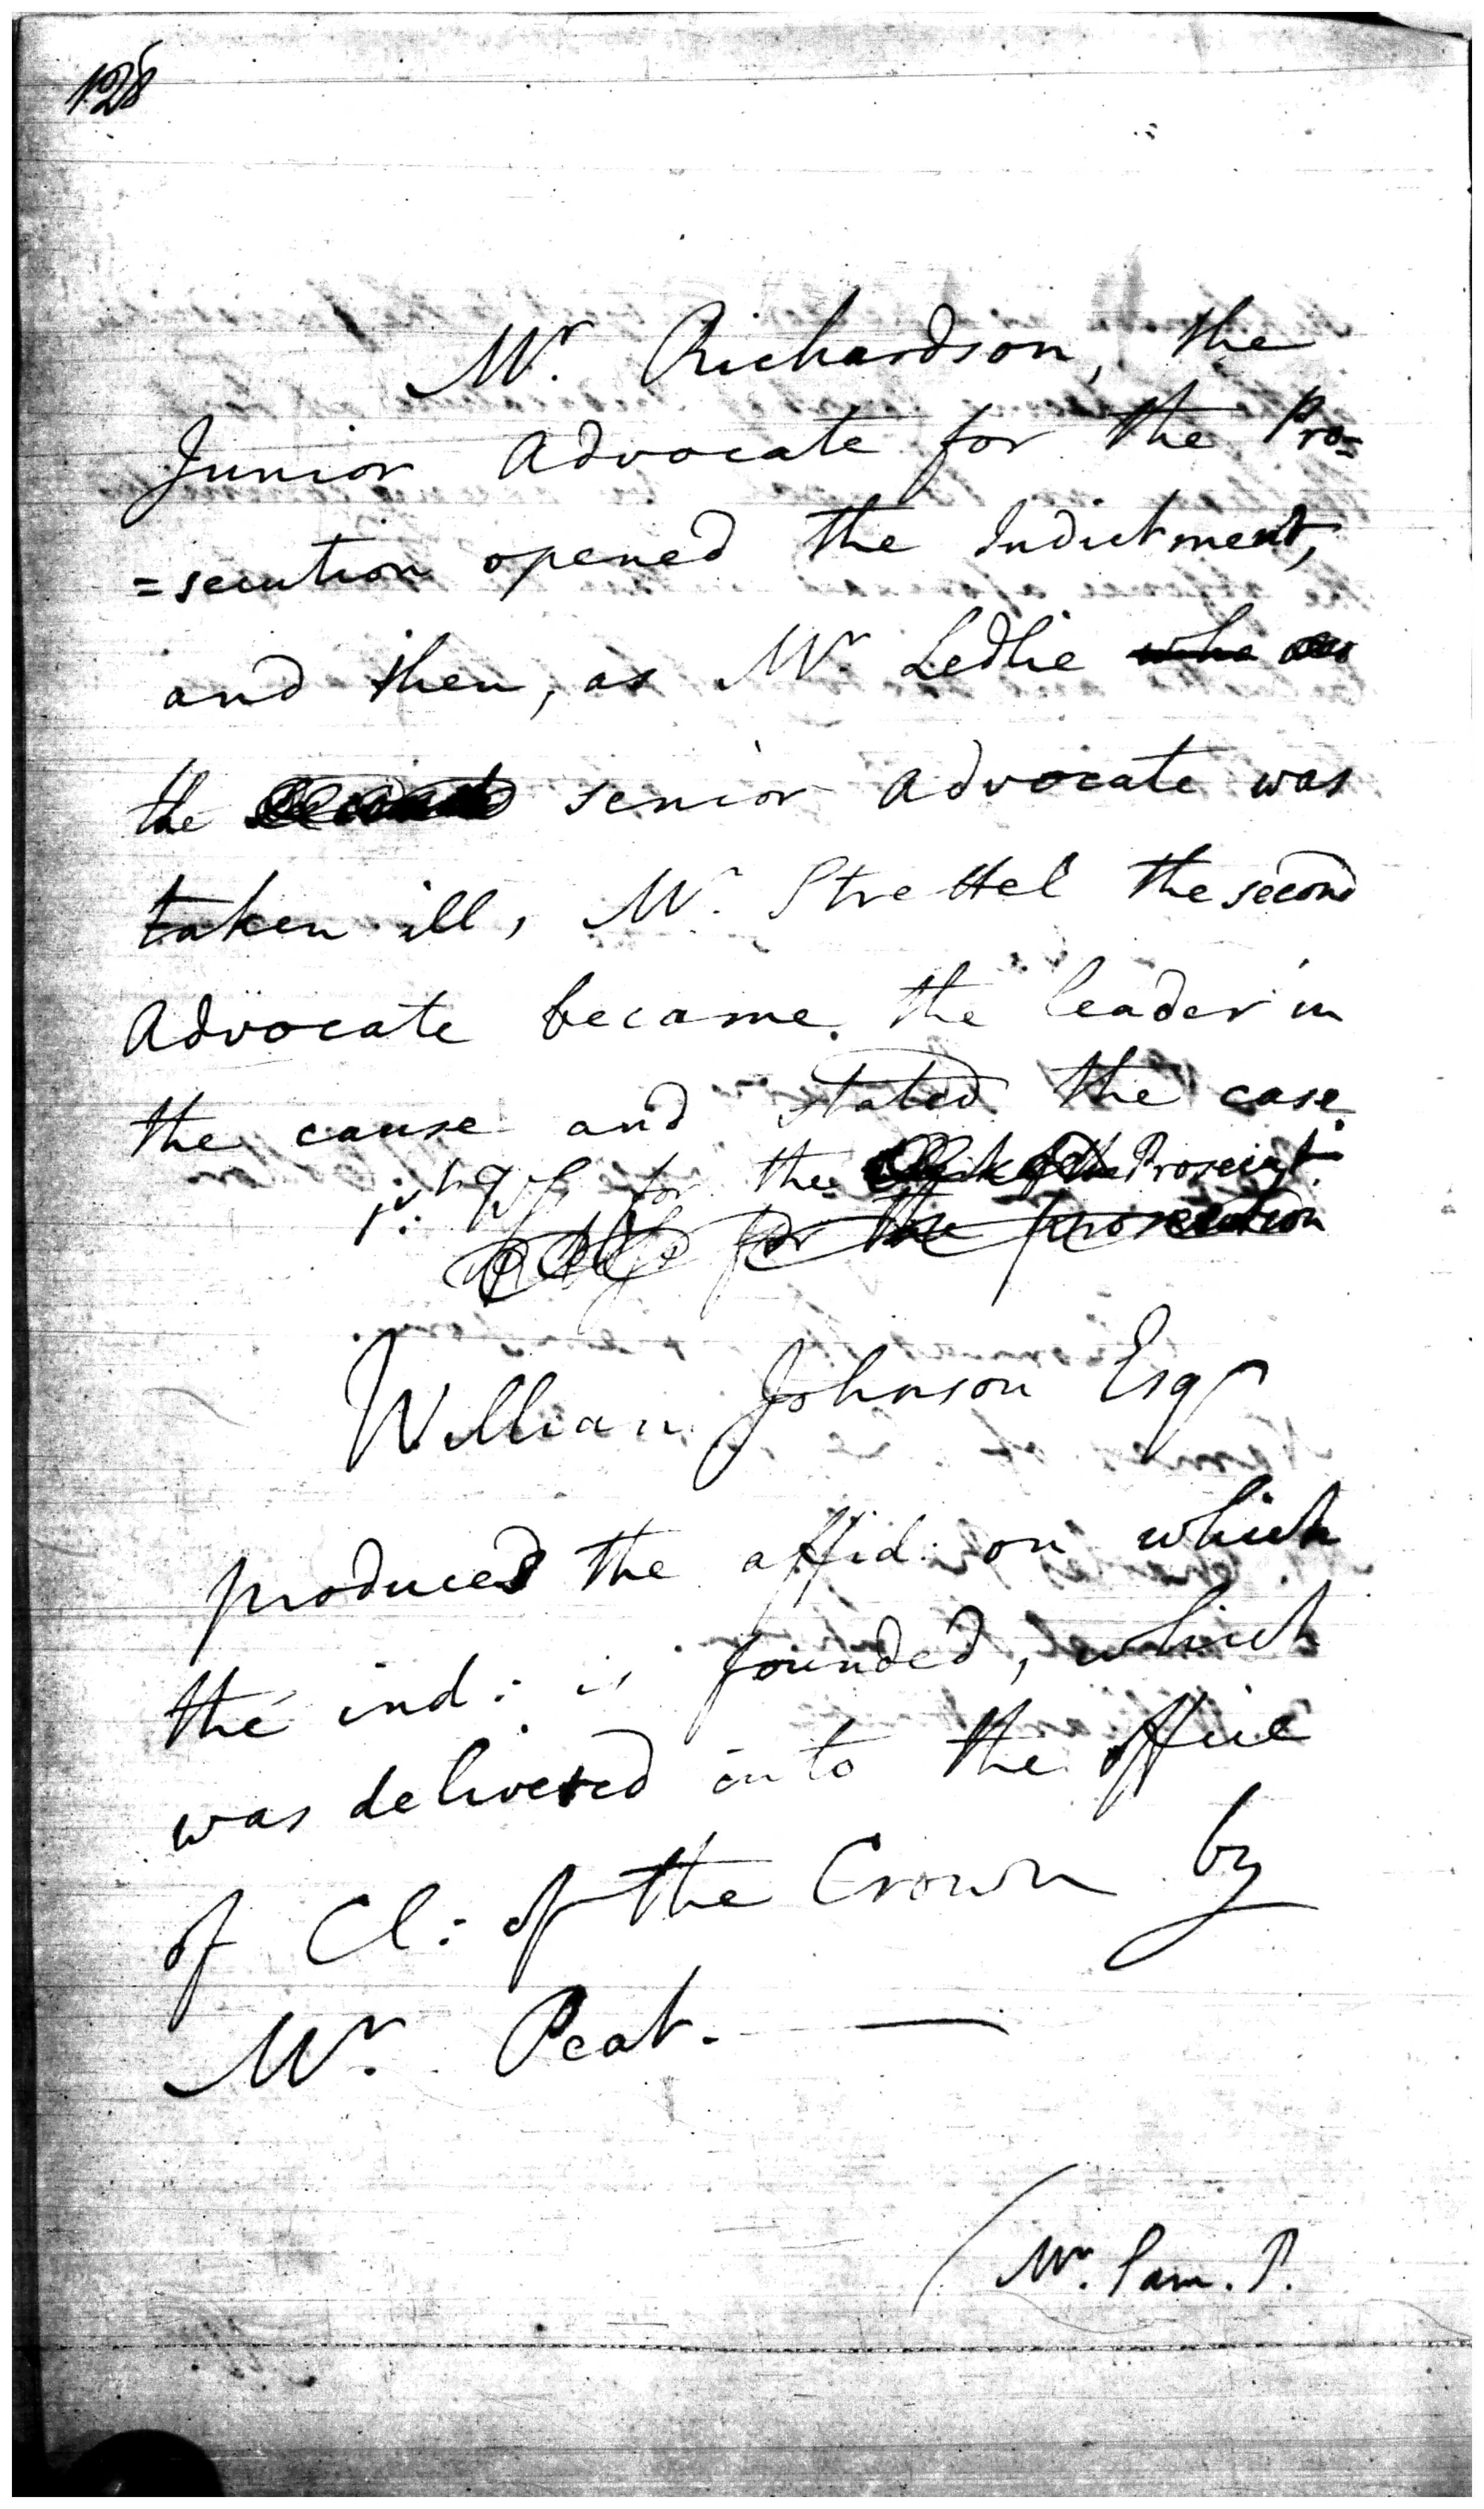 128
Mr. Richardson, the
Junior Advocate for the Pro=
=secution opened the Indictment,
and then, as Mr. Ledlie who was
the senior Advocate was
taken ill, Mr. Strettel the second
Advocate became the leader in
the cause and stated the case.
1st. Wss for the Prosecut:
for the prosecution
William Johnson Esqr
produced the affid: on which
the ind: is founded, which
was delivered into the office
of Cl: of the Crown by
Mr. Peat. —
Mr. Sam. P.